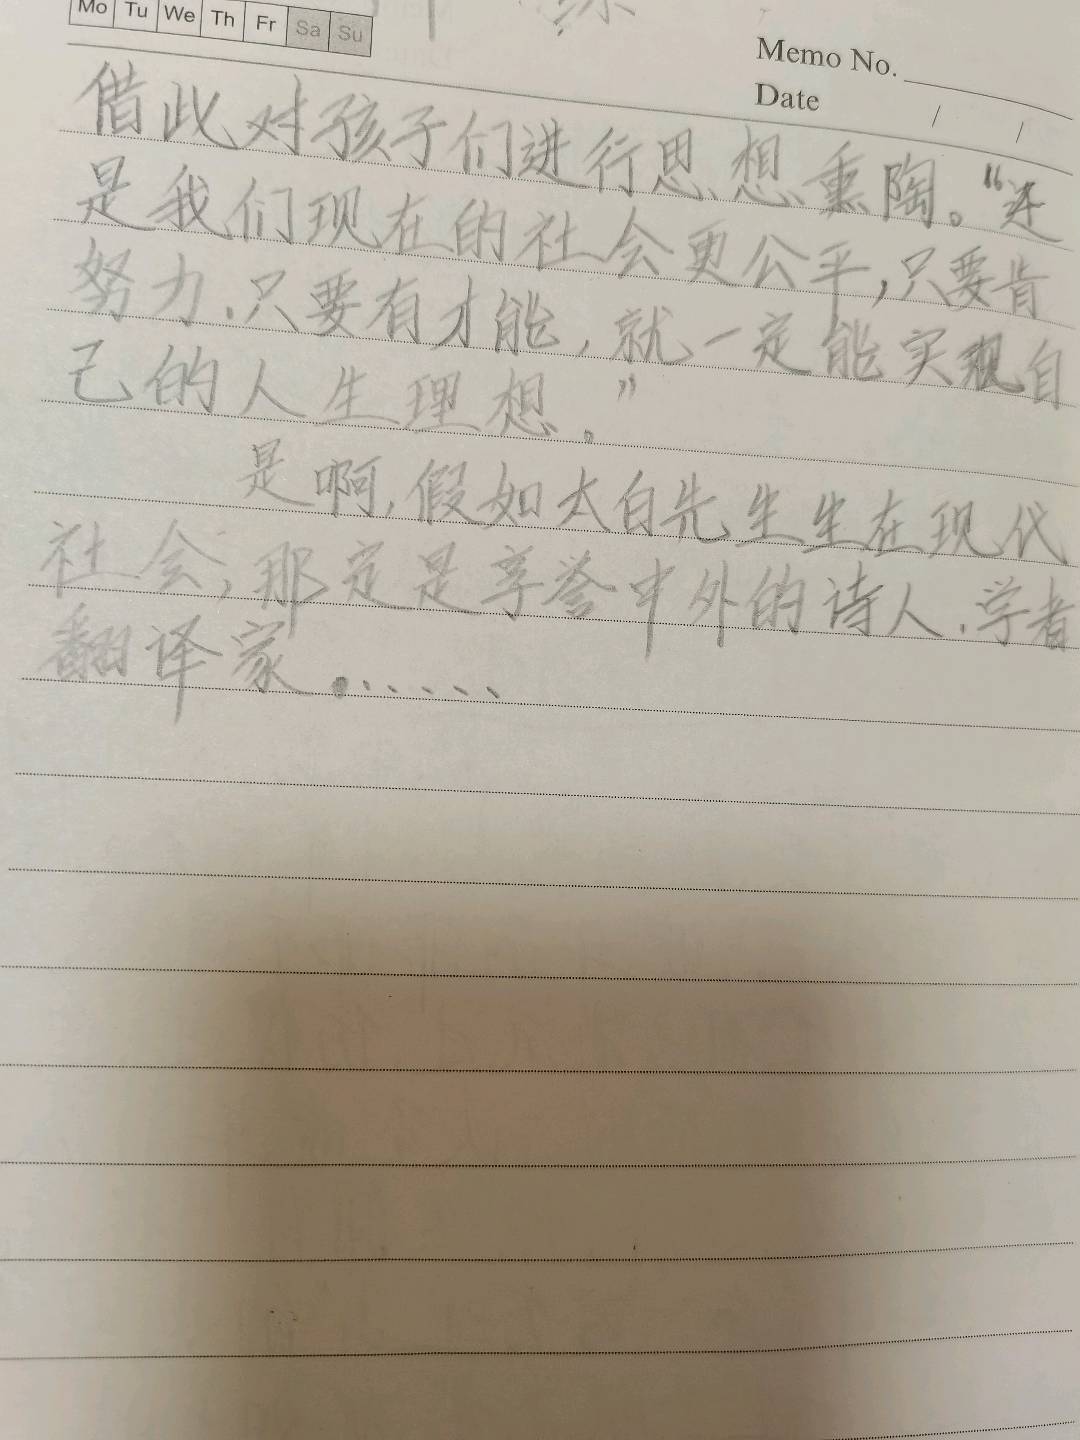 Mo Tu We Th Fr Sa Su
Memo No.
Date / /
借此对孩子们进行思想熏陶。“还
是我们现在的社会更公平,只要肯
努力.只要有才能,就一定能实现自
己的人生理想。”
是啊,假如太白先生生在现代
社会,那定是享誉中外的诗人.学者
翻译家......